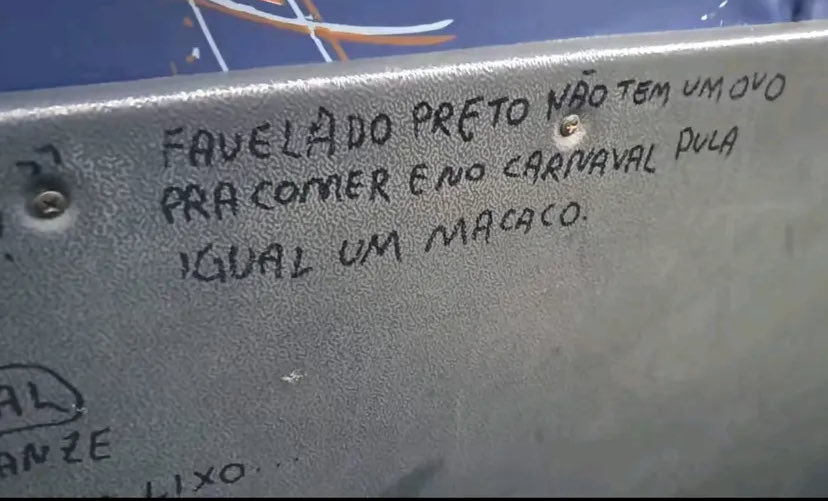 FAVELADO PRETO NÃO TEM UM OVO
PRA COMER E NO CARNAVAL PULA
IGUAL UM MACACO.
AL
ANZE
LIXO...